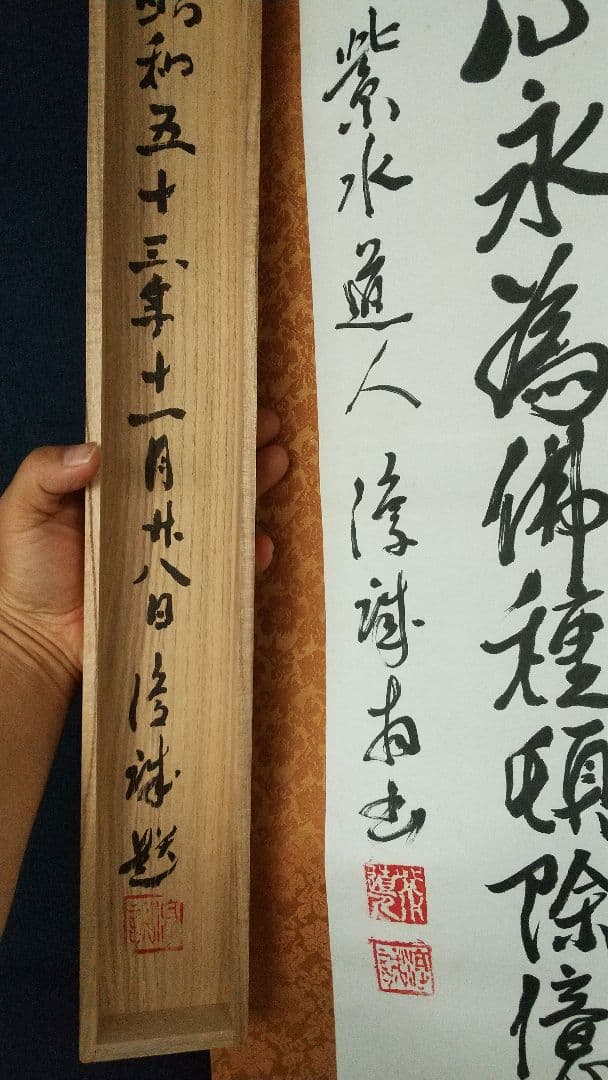 永為佛種頓除億
紫水道人 淳誠拝書
昭和五十三年十一月廿八日 淳誠題